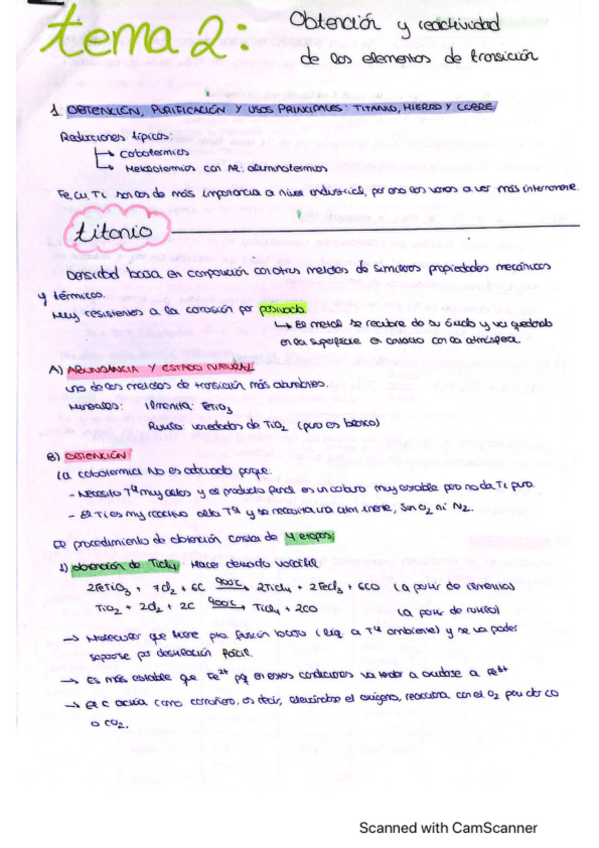 tema 2: Obtención y reactividad
de los elementos de transición
1. OBTENCIÓN, PURIFICACIÓN Y USOS PRINCIPALES: TITANIO, HIERRO Y COBRE
Reducciones típicas:
↳ Carbotermias
↳ Metalotermias con Al: aluminotermias
Fe, Cu, Ti son los de más importancia a nivel industrial, por eso los vamos a ver más
titanio
Densidad baja en comparación con otros metales de similares propiedades mecánicas
y térmicas.
Muy resistentes a la corrosión por pasivado
↳ El metal se recubre de su óxido y va quedando
en la superficie en contacto con la atmósfera
A) ABUNDANCIA Y ESTADO NATURAL
Uno de los metales de transición más abundantes.
Minerales: Ilmenita: FeTiO3
Rutilo: variedades de TiO2 (puro es blanco)
B) OBTENCIÓN
La carbotermia NO es adecuada porque:
- Necesita Tª muy altas y el producto final es un carburo muy estable pero no da Ti puro.
- El Ti es muy reactivo a alta Tª y se necesitaría una atm inerte, sin O2 ni N2.
El procedimiento de obtención consta de 4 etapas:
1) obtención de TiCl4: Hacer derivado volátil
2FeTiO3 + 7Cl2 + 6C 900ºC → 2TiCl4 + 2FeCl3 + 6CO (a partir de ilmenita)
TiO2 + 2Cl2 + 2C 900ºC → TiCl4 + 2CO (a partir de rutilo)
→ Molecular que tiene pto fusión bajo (líq. a Tª ambiente) y se va poder
separar por destilación fácil.
→ Es más estable que Fe2+ pq en estas condiciones va a oxidarse a Fe3+
→ El C actúa como carroñero, es decir, eliminándose el oxígeno, reacciona con el O2 para dar CO
o CO2.
Scanned with CamScanner